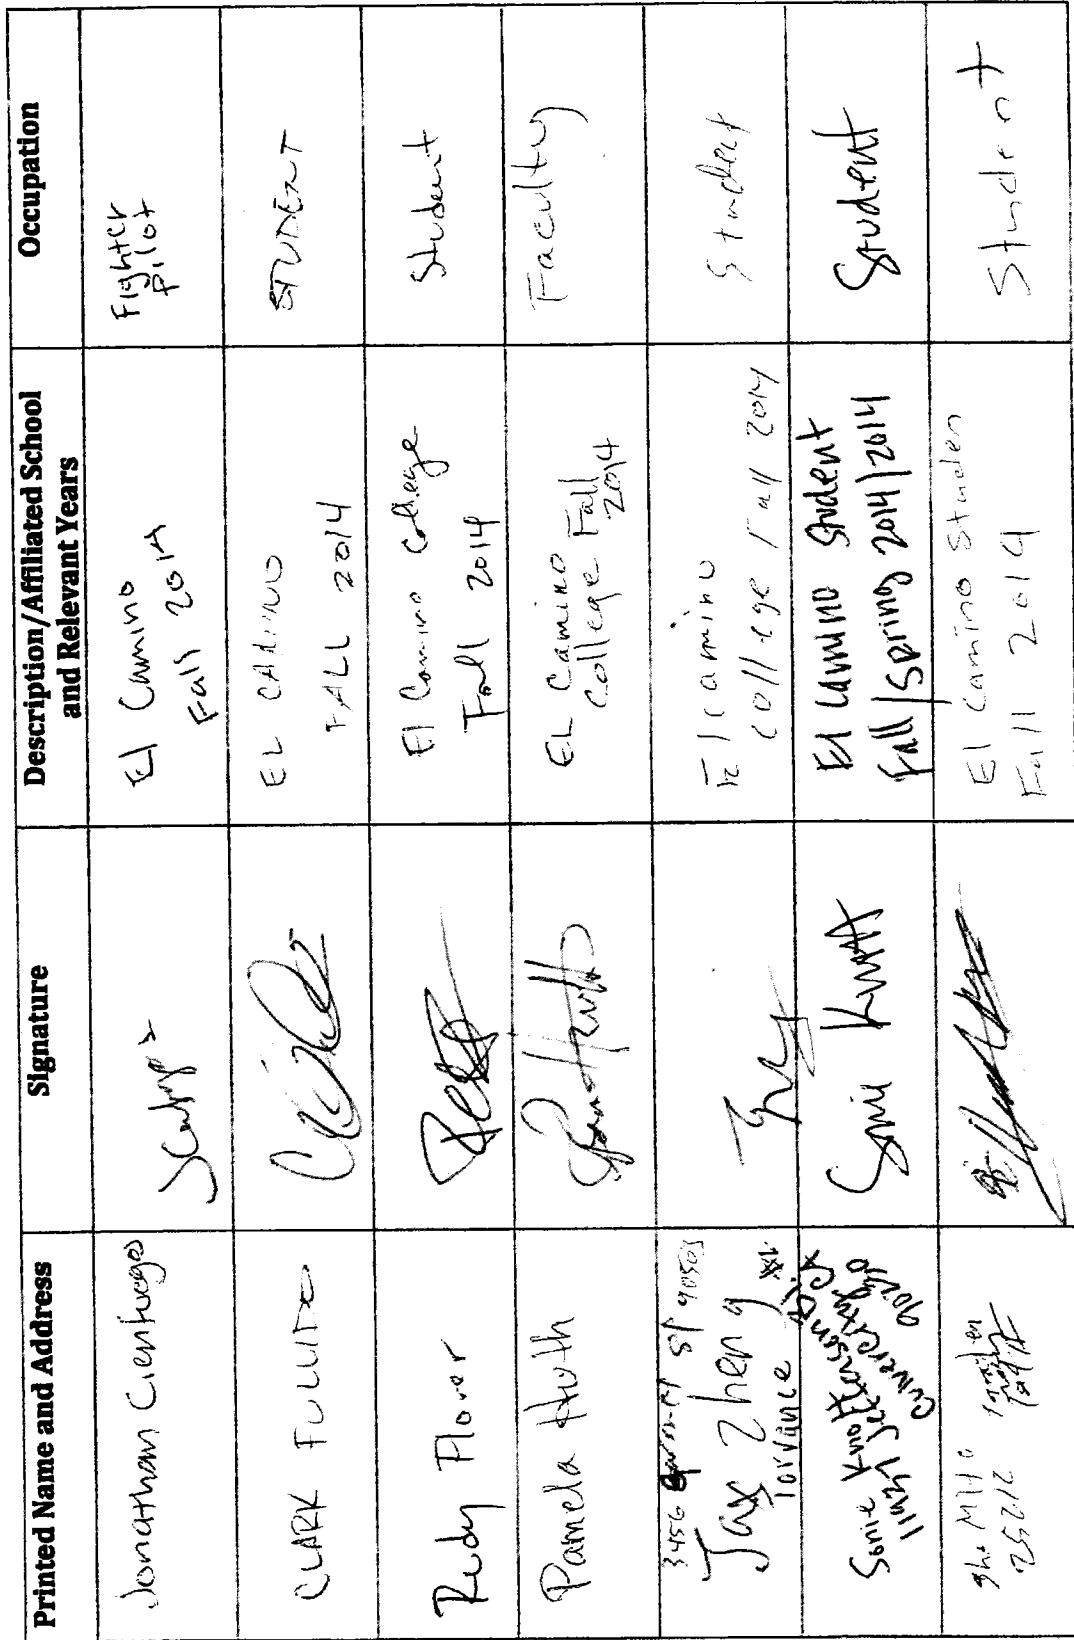 Printed Name and Address
Signature
Description/Affiliated School
and Relevant Years
Occupation
Jonathan Cienfuegos
El Camino
Fall 2014
Fighter
Pilot
CLARK
EL CAMINO
FALL 2014
STUDENT
Rudy Flores
El Camino College
Fall 2014
Student
Pamela Huth
EL Camino
College Fall
2014
Faculty
3456 St 90503
Jax Zheng
Torrance
El camino
college Fall 2014
Student
Sonie Knott
11931 Jefferson
Culver City
Sonie Knott
El Camino Student
Fall/Spring 2014/2014
Student
25212
El Camino Studen
Fall 2014
Student